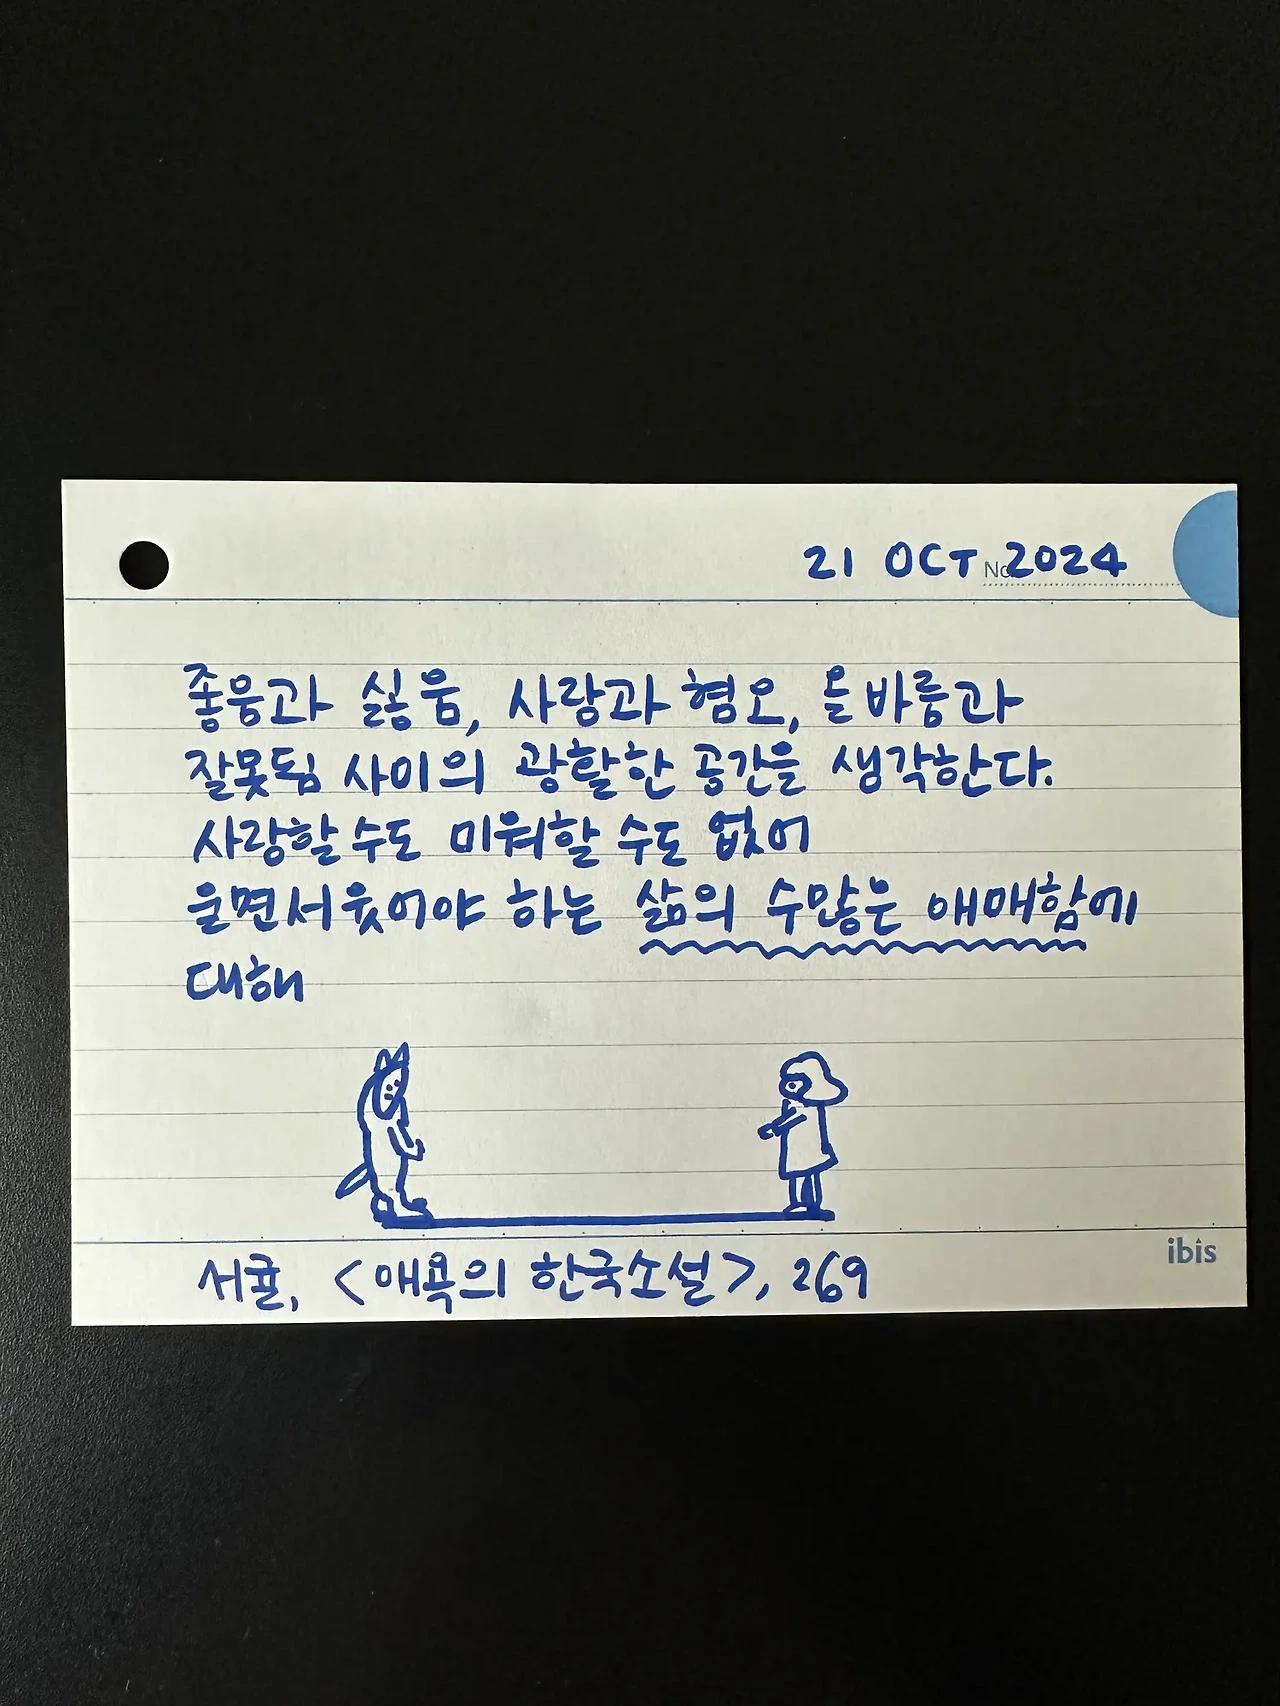 21 OCT 2024
No.
좋음과 싫음, 사랑과 혐오, 올바름과
잘못됨 사이의 광활한 공간을 생각한다.
사랑할 수도 미워할 수도 없어
울면서 웃어야 하는 삶의 수많은 애매함에
대해
ibis
서귤, <애욕의 한국소설>, 269